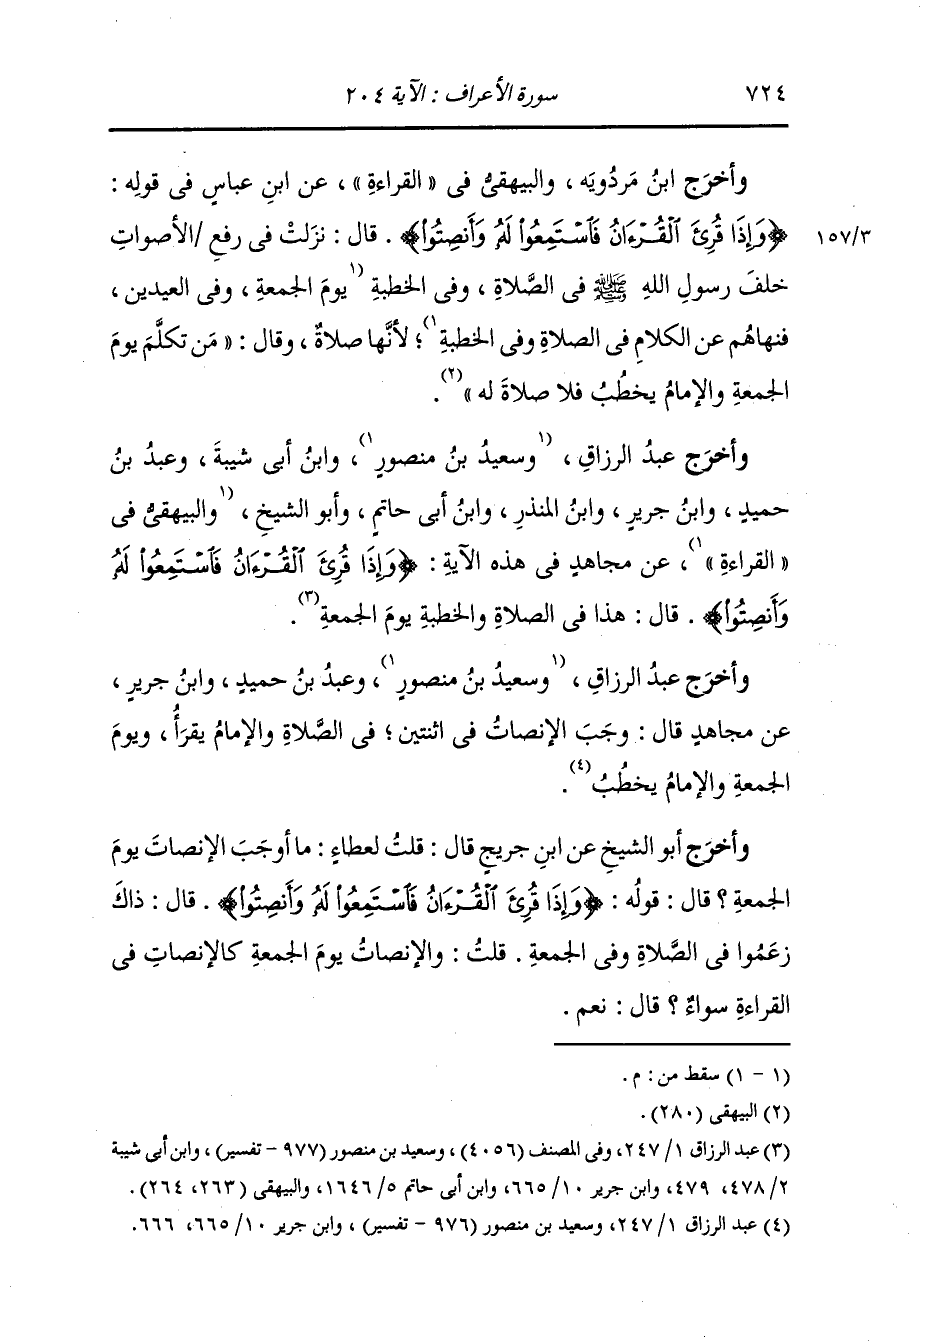 ٧٢٤ سورة الأعراف : الآية ٢٠٤
وأخرَج ابنُ مَردُويَه ، والبيهقىُّ فى « القراءةِ » ، عن ابنِ عباسٍ فى قولِه :
١٥٧/٣ ﴿وَإِذَا قُرِئَ ٱلْقُرْءَانُ فَٱسْتَمِعُوا۟ لَهُۥ وَأَنصِتُوا۟﴾ . قال : نزَلتْ فى رفعِ /الأصواتِ
خلفَ رسولِ اللهِ ﷺ فى الصَّلاةِ ، وفى الخطبةِ (١يومَ الجمعةِ ، وفى العيدين ،
فنهاهُم عن الكلامِ فى الصلاةِ وفى الخطبةِ١) ؛ لأنَّها صلاةٌ ، وقال : « مَن تكلَّمَ يومَ
الجمعةِ والإمامُ يخطُبُ فلا صلاةَ له »(٢) .
وأخرَج عبدُ الرزاقِ ، (١وسعيدُ بنُ منصورٍ١) ، وابنُ أبى شيبةَ ، وعبدُ بنُ
حميدٍ ، وابنُ جريرٍ ، وابنُ المنذرِ ، وابنُ أبى حاتمٍ ، وأبو الشيخِ ، (١والبيهقىُّ فى
« القراءةِ »١) ، عن مجاهدٍ فى هذه الآيةِ : ﴿وَإِذَا قُرِئَ ٱلْقُرْءَانُ فَٱسْتَمِعُوا۟ لَهُۥ
وَأَنصِتُوا۟﴾ . قال : هذا فى الصلاةِ والخطبةِ يومَ الجمعةِ(٣) .
وأخرَج عبدُ الرزاقِ ، (١وسعيدُ بنُ منصورٍ١) ، وعبدُ بنُ حميدٍ ، وابنُ جريرٍ ،
عن مجاهدٍ قال : وجَبَ الإنصاتُ فى اثنتين ؛ فى الصَّلاةِ والإمامُ يقرَأُ ، ويومَ
الجمعةِ والإمامُ يخطُبُ(٤) .
وأخرَج أبو الشيخِ عن ابنِ جريجٍ قال : قلتُ لعطاءٍ : ما أوجَبَ الإنصاتَ يومَ
الجمعةِ ؟ قال : قولُه : ﴿وَإِذَا قُرِئَ ٱلْقُرْءَانُ فَٱسْتَمِعُوا۟ لَهُۥ وَأَنصِتُوا۟﴾ . قال : ذاكَ
زعَمُوا فى الصَّلاةِ وفى الجمعةِ . قلتُ : والإنصاتُ يومَ الجمعةِ كالإنصاتِ فى
القراءةِ سواءٌ ؟ قال : نعم .
(١ - ١) سقط من : م .
(٢) البيهقى (٢٨٠) .
(٣) عبد الرزاق ١/ ٢٤٧، وفى المصنف (٤٠٥٦) ، وسعيد بن منصور (٩٧٧ - تفسير) ، وابن أبى شيبة
٢/ ٤٧٨، ٤٧٩، وابن جرير ١٠/ ٦٦٥، وابن أبى حاتم ٥/ ١٦٤٦، والبيهقى (٢٦٣، ٢٦٤) .
(٤) عبد الرزاق ١/ ٢٤٧، وسعيد بن منصور (٩٧٦ - تفسير) ، وابن جرير ١٠/ ٦٦٥، ٦٦٦.